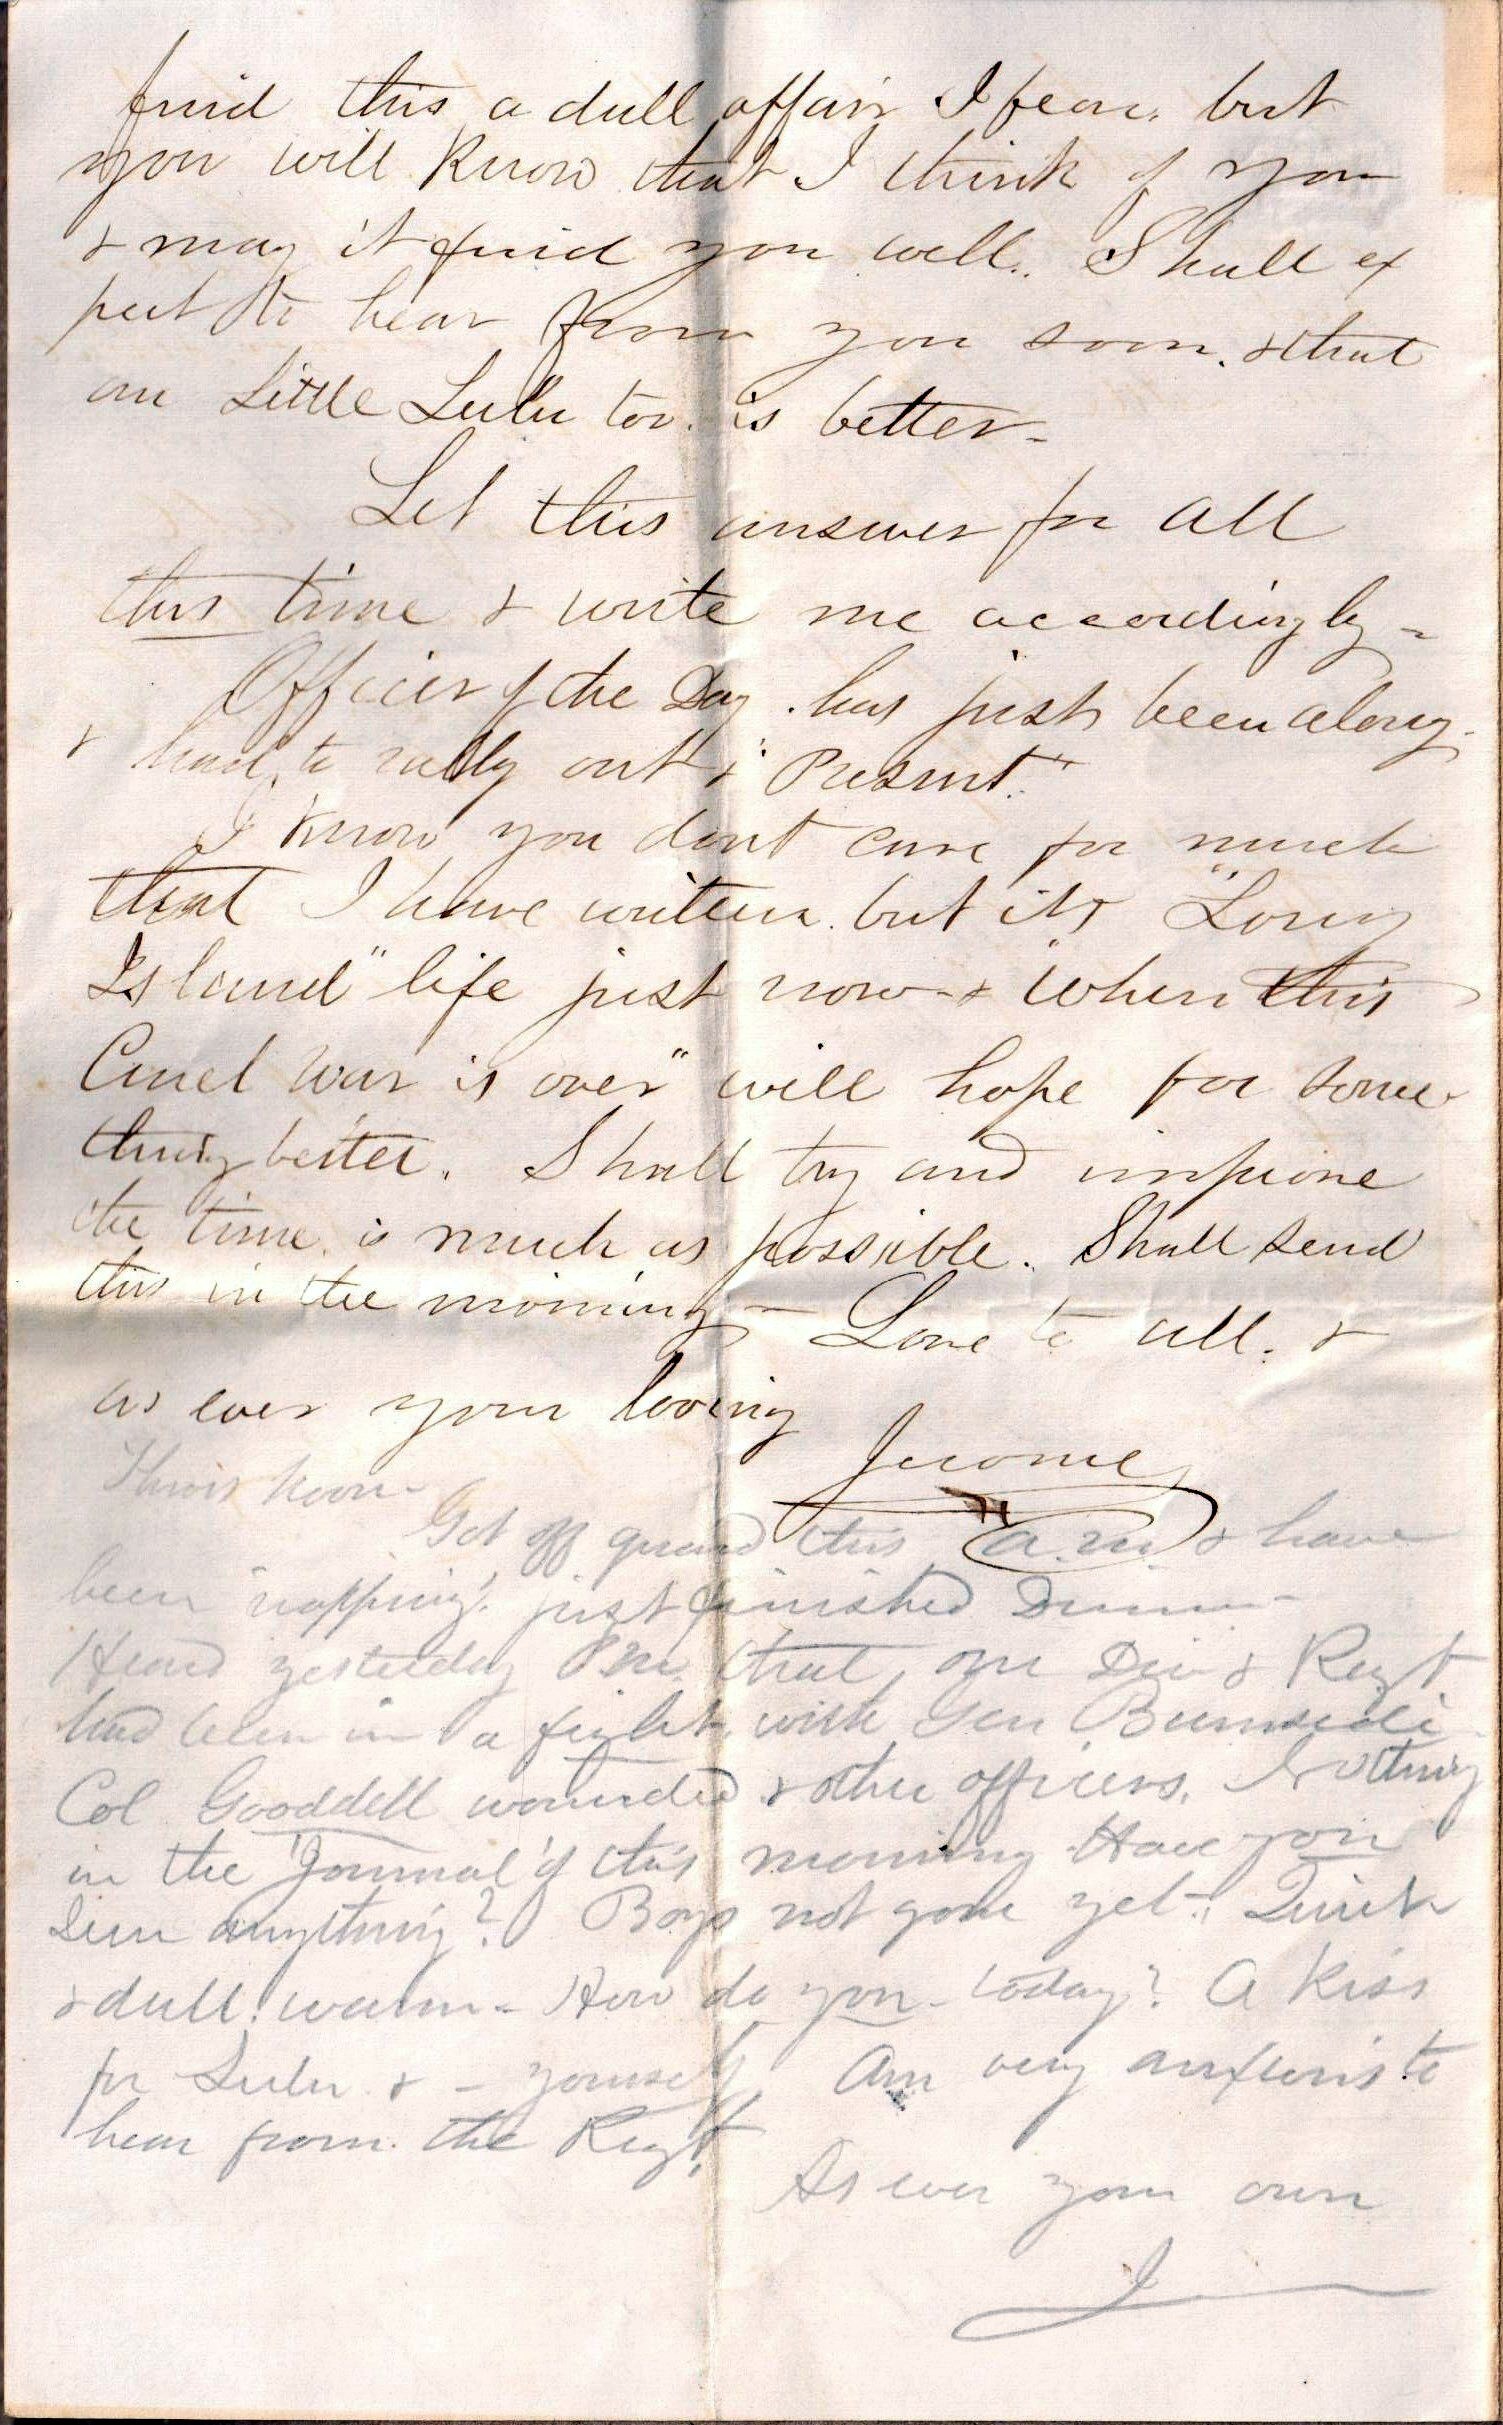 find this a dull affair I fear. but
you will know that I think of you
& may it find you well. Shall ex
pect to hear from you soon. & that
our Little Lulu too. is better-
Let this answer for all
this time & write me accordingly-
Officer of the Day. has just been along.
& had to rally out & "Present."
I know you dont care for much
that I have written. but its "Long
Island" life just now- & "When this
Cruel War is over" will hope for some
thing better. Shall try and improve
the time. as much as possible. Shall send
this in the morning - Love to all. &
as ever your loving
Jerome
Thurs noon-
Got off guard this a.m. & have
been "napping". just finished Dinner-
Heard yesterday P.M. that our Div & Regt
had been in a fight with Gen Burnside.
Col Gooddell wounded & other officers. Nothing
in the "Journal" of this morning. Have you
seen anything? Boys not gone yet. Quiet
& dull! warm- How do you- today? A Kiss
for Lulu & - yourself Am very anxious to
hear from the Regt.
As ever your own
J